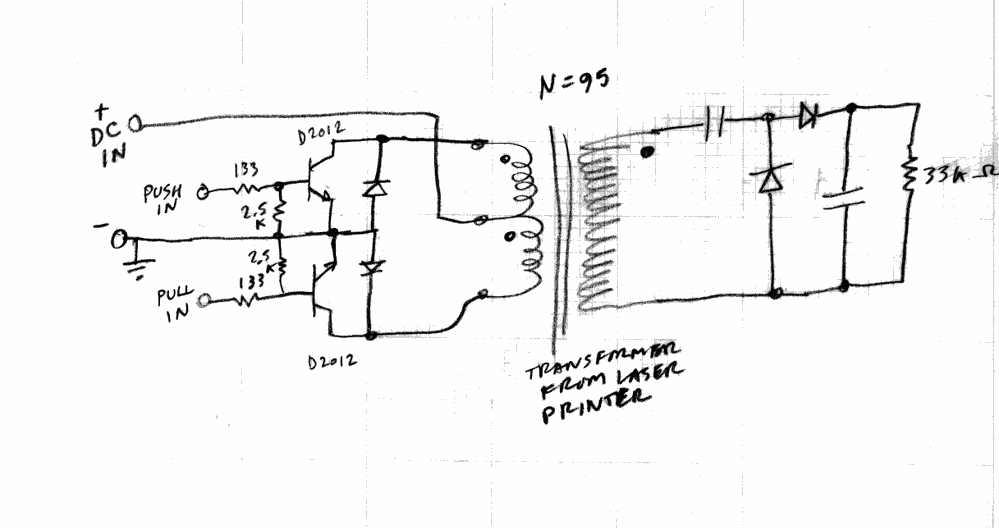 N=95
+
DC
IN
D2012
133
PUSH
IN
2.5
K
-
2.5
K
133
PULL
IN
D2012
33K Ω
TRANSFORMER
FROM LASER
PRINTER